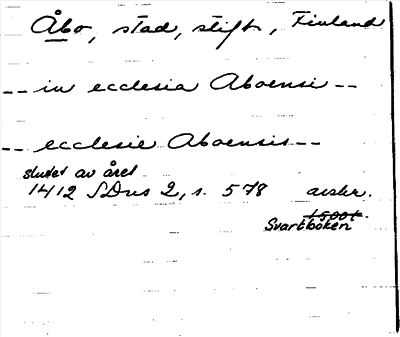 Åbo, stad, stift, Finland
-- in ecclesia Aboensi --
-- ecclesie Aboensis --
slutet av året
1412 SDns 2, s. 578 avskr.
1500t.
Svartboken